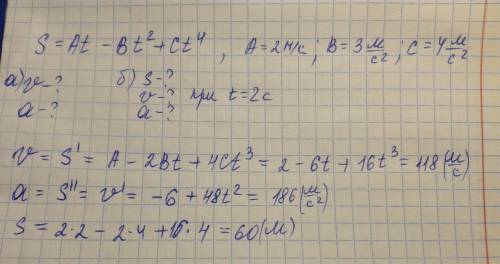 S = At - Bt² + Ct⁴ , A = 2 м/с ; B = 3 м/с² ; C = 4 м/с²
а) v - ? б) S - ?
a - ? v - ? при t = 2 с
a - ?
v = S' = A - 2Bt + 4Ct³ = 2 - 6t + 16t³ = 118 (м/с)
a = S'' = v' = -6 + 48t² = 186 (м/с²)
S = 2·2 - 2·4 + 16·4 = 60 (м)